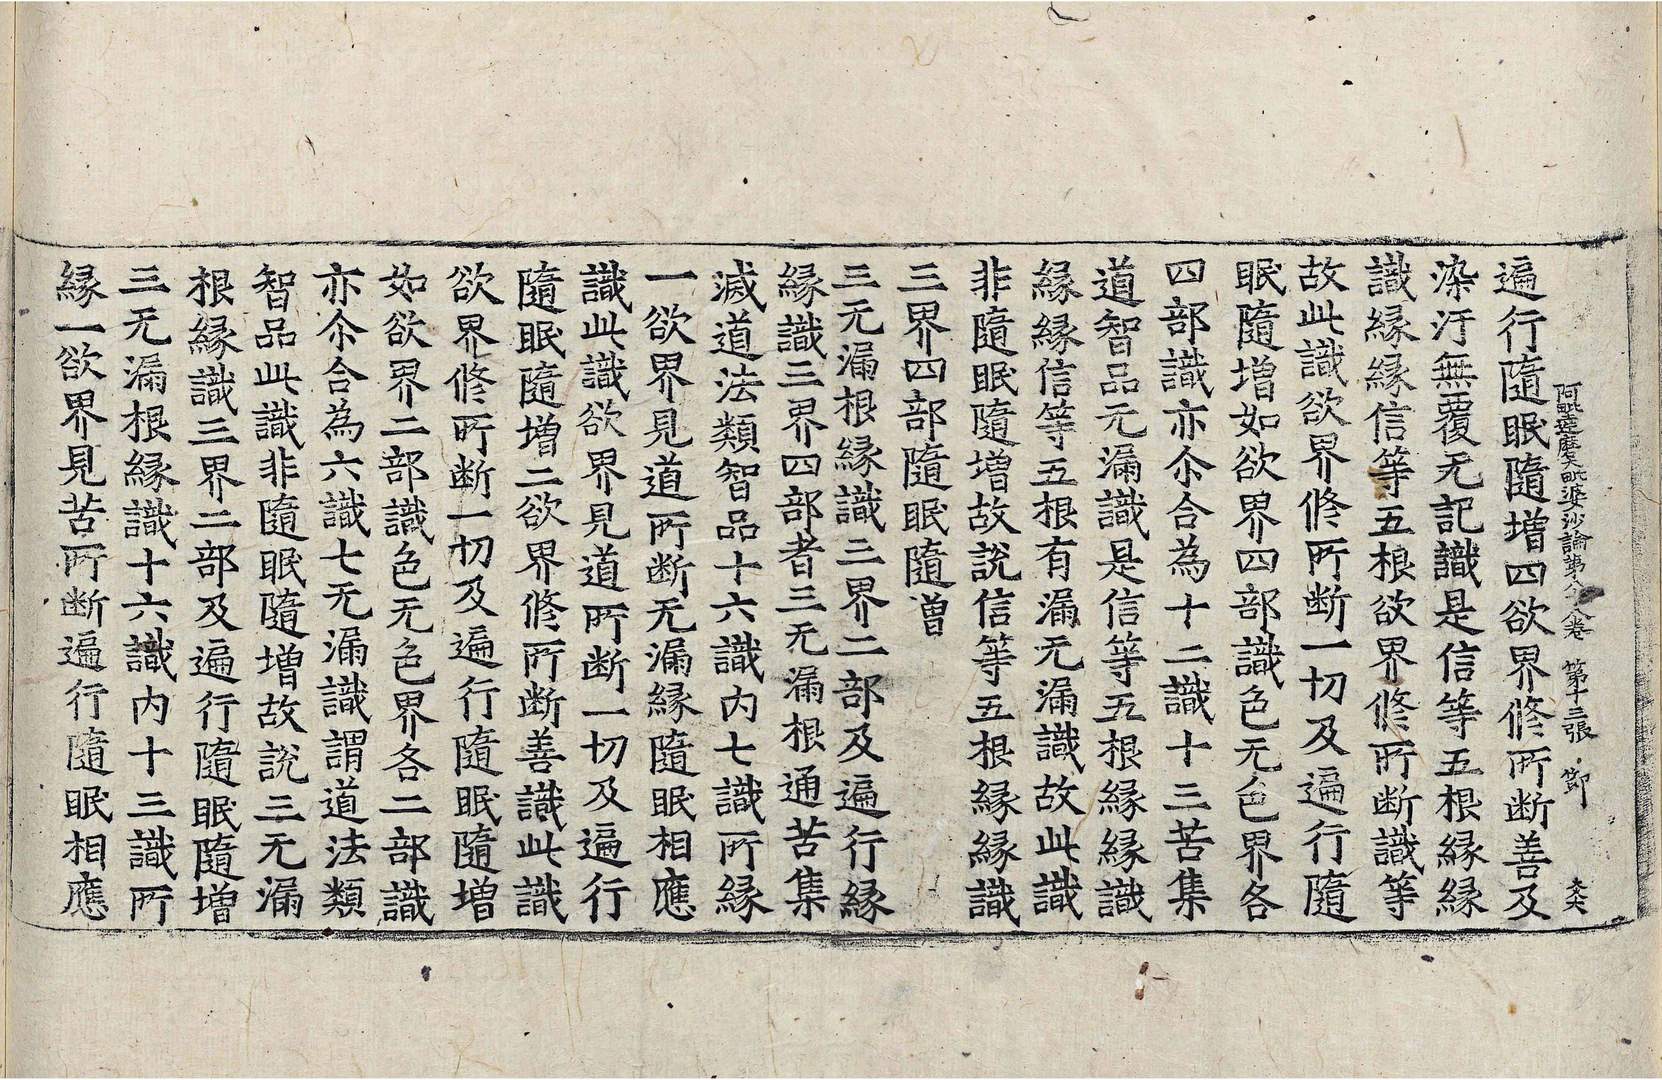 阿毗達磨大毗婆沙論第八八卷 第十三張 節
遍行隨眠隨增四欲界修所斷善及
染汙無覆无記識是信等五根緣緣
識緣緣信等五根欲界修所斷識等
故此識欲界修所斷一切及遍行隨
眠隨增如欲界四部識色无色界各
四部識亦尒合為十二識十三苦集
道智品无漏識是信等五根緣緣識
緣緣信等五根有漏无漏識故此識
非隨眠隨增故說信等五根緣緣識
三界四部隨眠隨增
三无漏根緣識三界二部及遍行緣
緣識三界四部者三无漏根通苦集
滅道法類智品十六識內七識所緣
一欲界見道所斷无漏緣隨眠相應
識此識欲界見道所斷一切及遍行
隨眠隨增二欲界修所斷善識此識
欲界修所斷一切及遍行隨眠隨增
如欲界二部識色无色界各二部識
亦尒合為六識七无漏識謂道法類
智品此識非隨眠隨增故說三无漏
根緣識三界二部及遍行隨眠隨增
三无漏根緣識十六識內十三識所
緣一欲界見苦所斷遍行隨眠相應